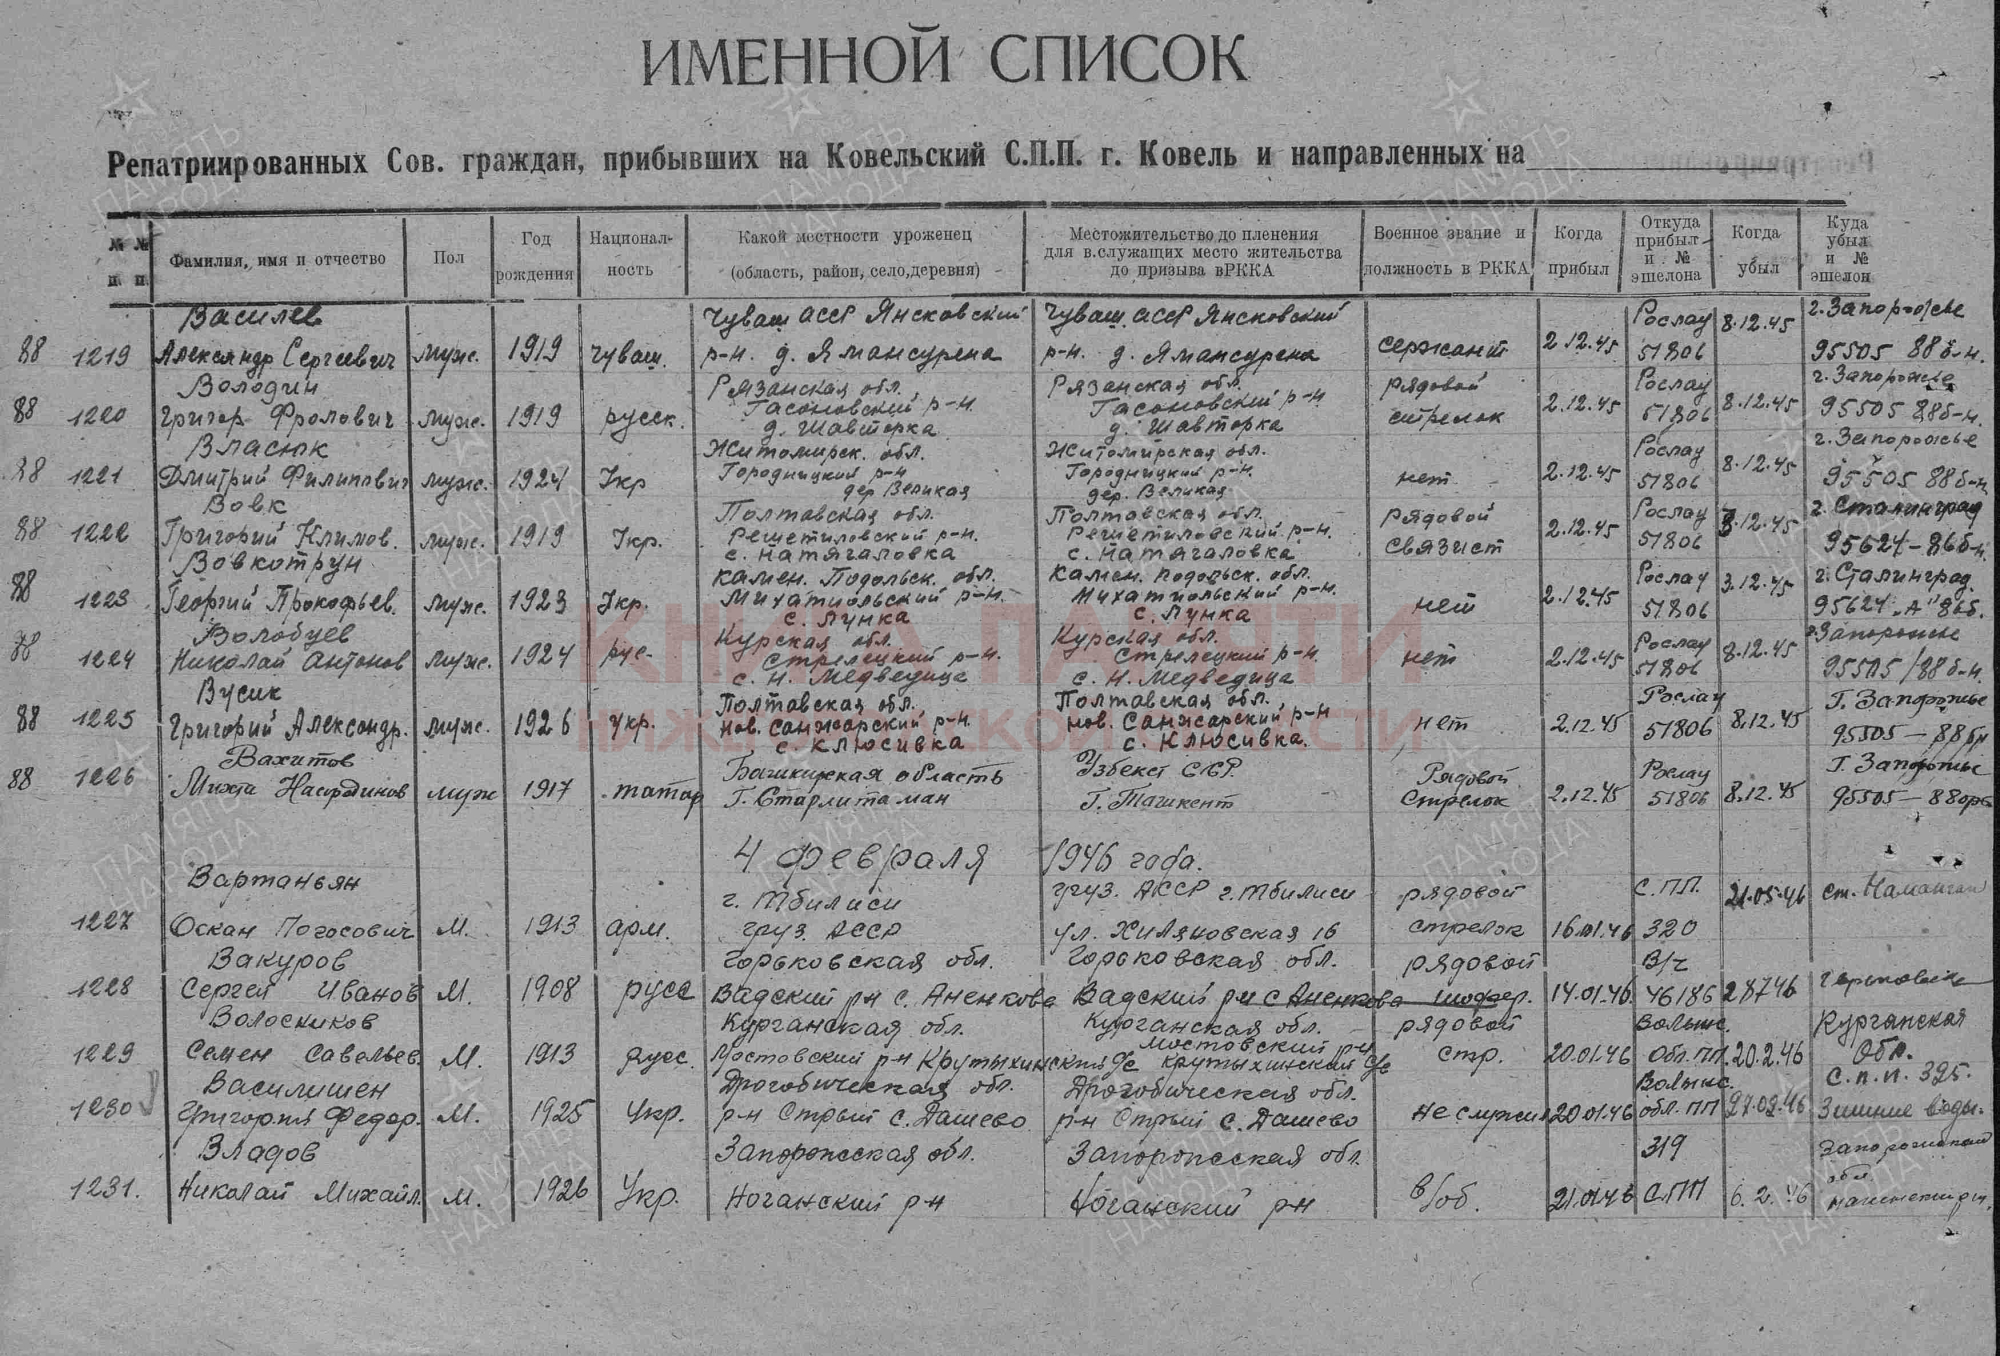 ИМЕННОЙ СПИСОК
Репатриированных Сов. граждан, прибывших на Ковельский С.П.П. г. Ковель и направленных на
№№ п. п. Фамилия, имя и отчество Пол Год рождения Национальность Какой местности уроженец (область, район, село, деревня) Местожительство до пленения для в.служащих место жительства до призыва в РККА Военное звание и должность в РККА Когда прибыл Откуда прибыл и № эшелона Когда убыл Куда убыл и № эшелон
Василев Чуваш АССР Янсковский Чуваш. АССР Янсковский Рослау 8.12.45 г. Запорожье
88 1219 Александр Сергеевич муж. 1919 чуваш. р-н. д. Ямансурена р-н. д. Ямансурена сержант 2.12.45 51806 95505 88 б-н.
Володин Рязанская обл. Рязанская обл. рядовой Рослау г. Запорожье
88 1220 Григор Фролович муж. 1919 русск. Гасоновский р-н. Гасоновский р-н. стрелок 2.12.45 51806 8.12.45 95505 88б-н.
д. Шавторка д. Шавторка
Власюк Житомирск. обл. Житомирская обл. Рослау г. Запорожье
88 1221 Дмитрий Филипович муж. 1924 Укр Городницкий р-н Городницкий р-н. нет 2.12.45 51806 8.12.45 95505 88б-н
дер Великая дер. Великая
Вовк Полтавская обл. Полтавская обл. рядовой Рослау г. Сталинград
88 1222 Григорий Климов. муж. 1919 Укр. Решетиловский р-н. Решетиловский р-н. связист 2.12.45 51806 8.12.45 95624-86б-н
с. Натягаловка с. Натягаловка
Вовкотрун Камен. Подольск. обл. Камен. Подольск. обл. Рослау г. Сталинград.
88 1223 Георгий Прокофьев. муж. 1923 Укр. Михатпольский р-н. Михатпольский р-н. нет 2.12.45 51806 3.12.45 95624 „А" 86б.
с. Лунка с. Лунка
Волобуев Курская обл. Курская обл. Рослау г. Запорожье
88 1224 Николай Антонов муж. 1924 рус. Стрелецкий р-н. Стрелецкий р-н. нет 2.12.45 51806 8.12.45 95505/88б-н
с. Н. Медведица с. Н. Медведица
Вусик Полтавская обл. Полтавская обл. Рослау Г. Запорожье
88 1225 Григорий Александр. муж. 1926 укр. нов. Санжарский р-н нов. Санжарский р-н нет 2.12.45 51806 8.12.45 95505 - 88бн
с. Клюсивка с. Клюсивка.
Вахитов Башкирская область Узбекс ССР. Рядовой Рослау Г. Запорожье
88 1226 муж 1917 татар Г. Старлитаман Г. Ташкент Стрелок 2.12.45 51806 8.12.45 95505-88
4 февраля 1946 года.
Вартаньян г. Тбилиси груз. АССР г. Тбилиси рядовой С.П.П. 21.05.46 ст. Наманган
1227 Оскан Погосович М. 1913 арм. груз. АССР ул. Хиляновская 16 стрелок 16.01.46 320
Вакуров Горьковская обл. Горьковская обл. рядовой В/ч
1228 Сергей Иванов М. 1908 русс Вадский рн с. Аненкова Вадский рн с Аненкова шоффер. 14.01.46. 46186 28746
Волосников Курганская обл. Курганская обл. рядовой Волынс. Курганская
1229 Семен Савельев. М. 1913 русс. Мостовский р-н Крутыхинский с/с Мостовский рн крутыхинский с/с стр. 20.01.46 Обл.ПП 20.2.46 Обл.
Василишен Дрогобическая обл. Дрогобическая обл. Волынс. С.п.п. 325.
1230 Григорий Федор. М. 1925 Укр. р-н Стрый с. Дашево р-н Стрый с. Дашево не служил 20.01.46 обл. ПП 27.02.46 Зимние воды.
Владов Запорожская обл. Запорожская обл. 319 Запорожская обл.
1231. Николай Михайл. М. 1926 Укр. Ноганский р-н Ноганский р-н в/об. 21.01.46 С.ПП 6.2.46
КНИГА ПАМЯТИ
НИЖЕГОРОДСКОЙ ОБЛАСТИ
ПАМЯТЬ НАРОДА